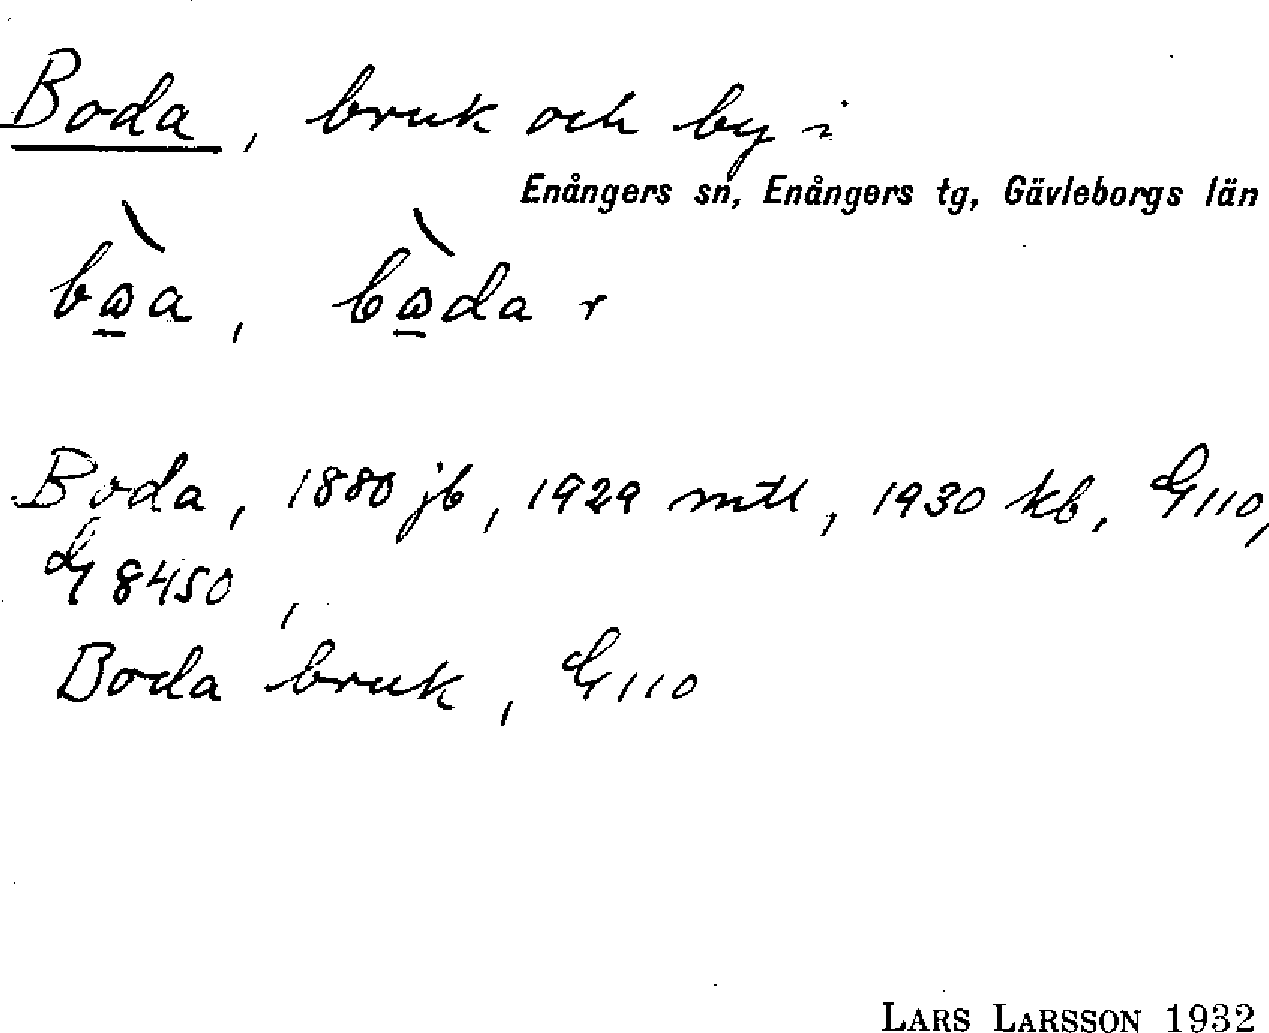 Boda, bruk och by i
Enångers sn, Enångers tg, Gävleborgs län
bωa, bωda r
Boda, 1880 jb, 1929 mtl, 1930 kb, G110,
G 8450,
Boda bruk, G110
LARS LARSSON 1932